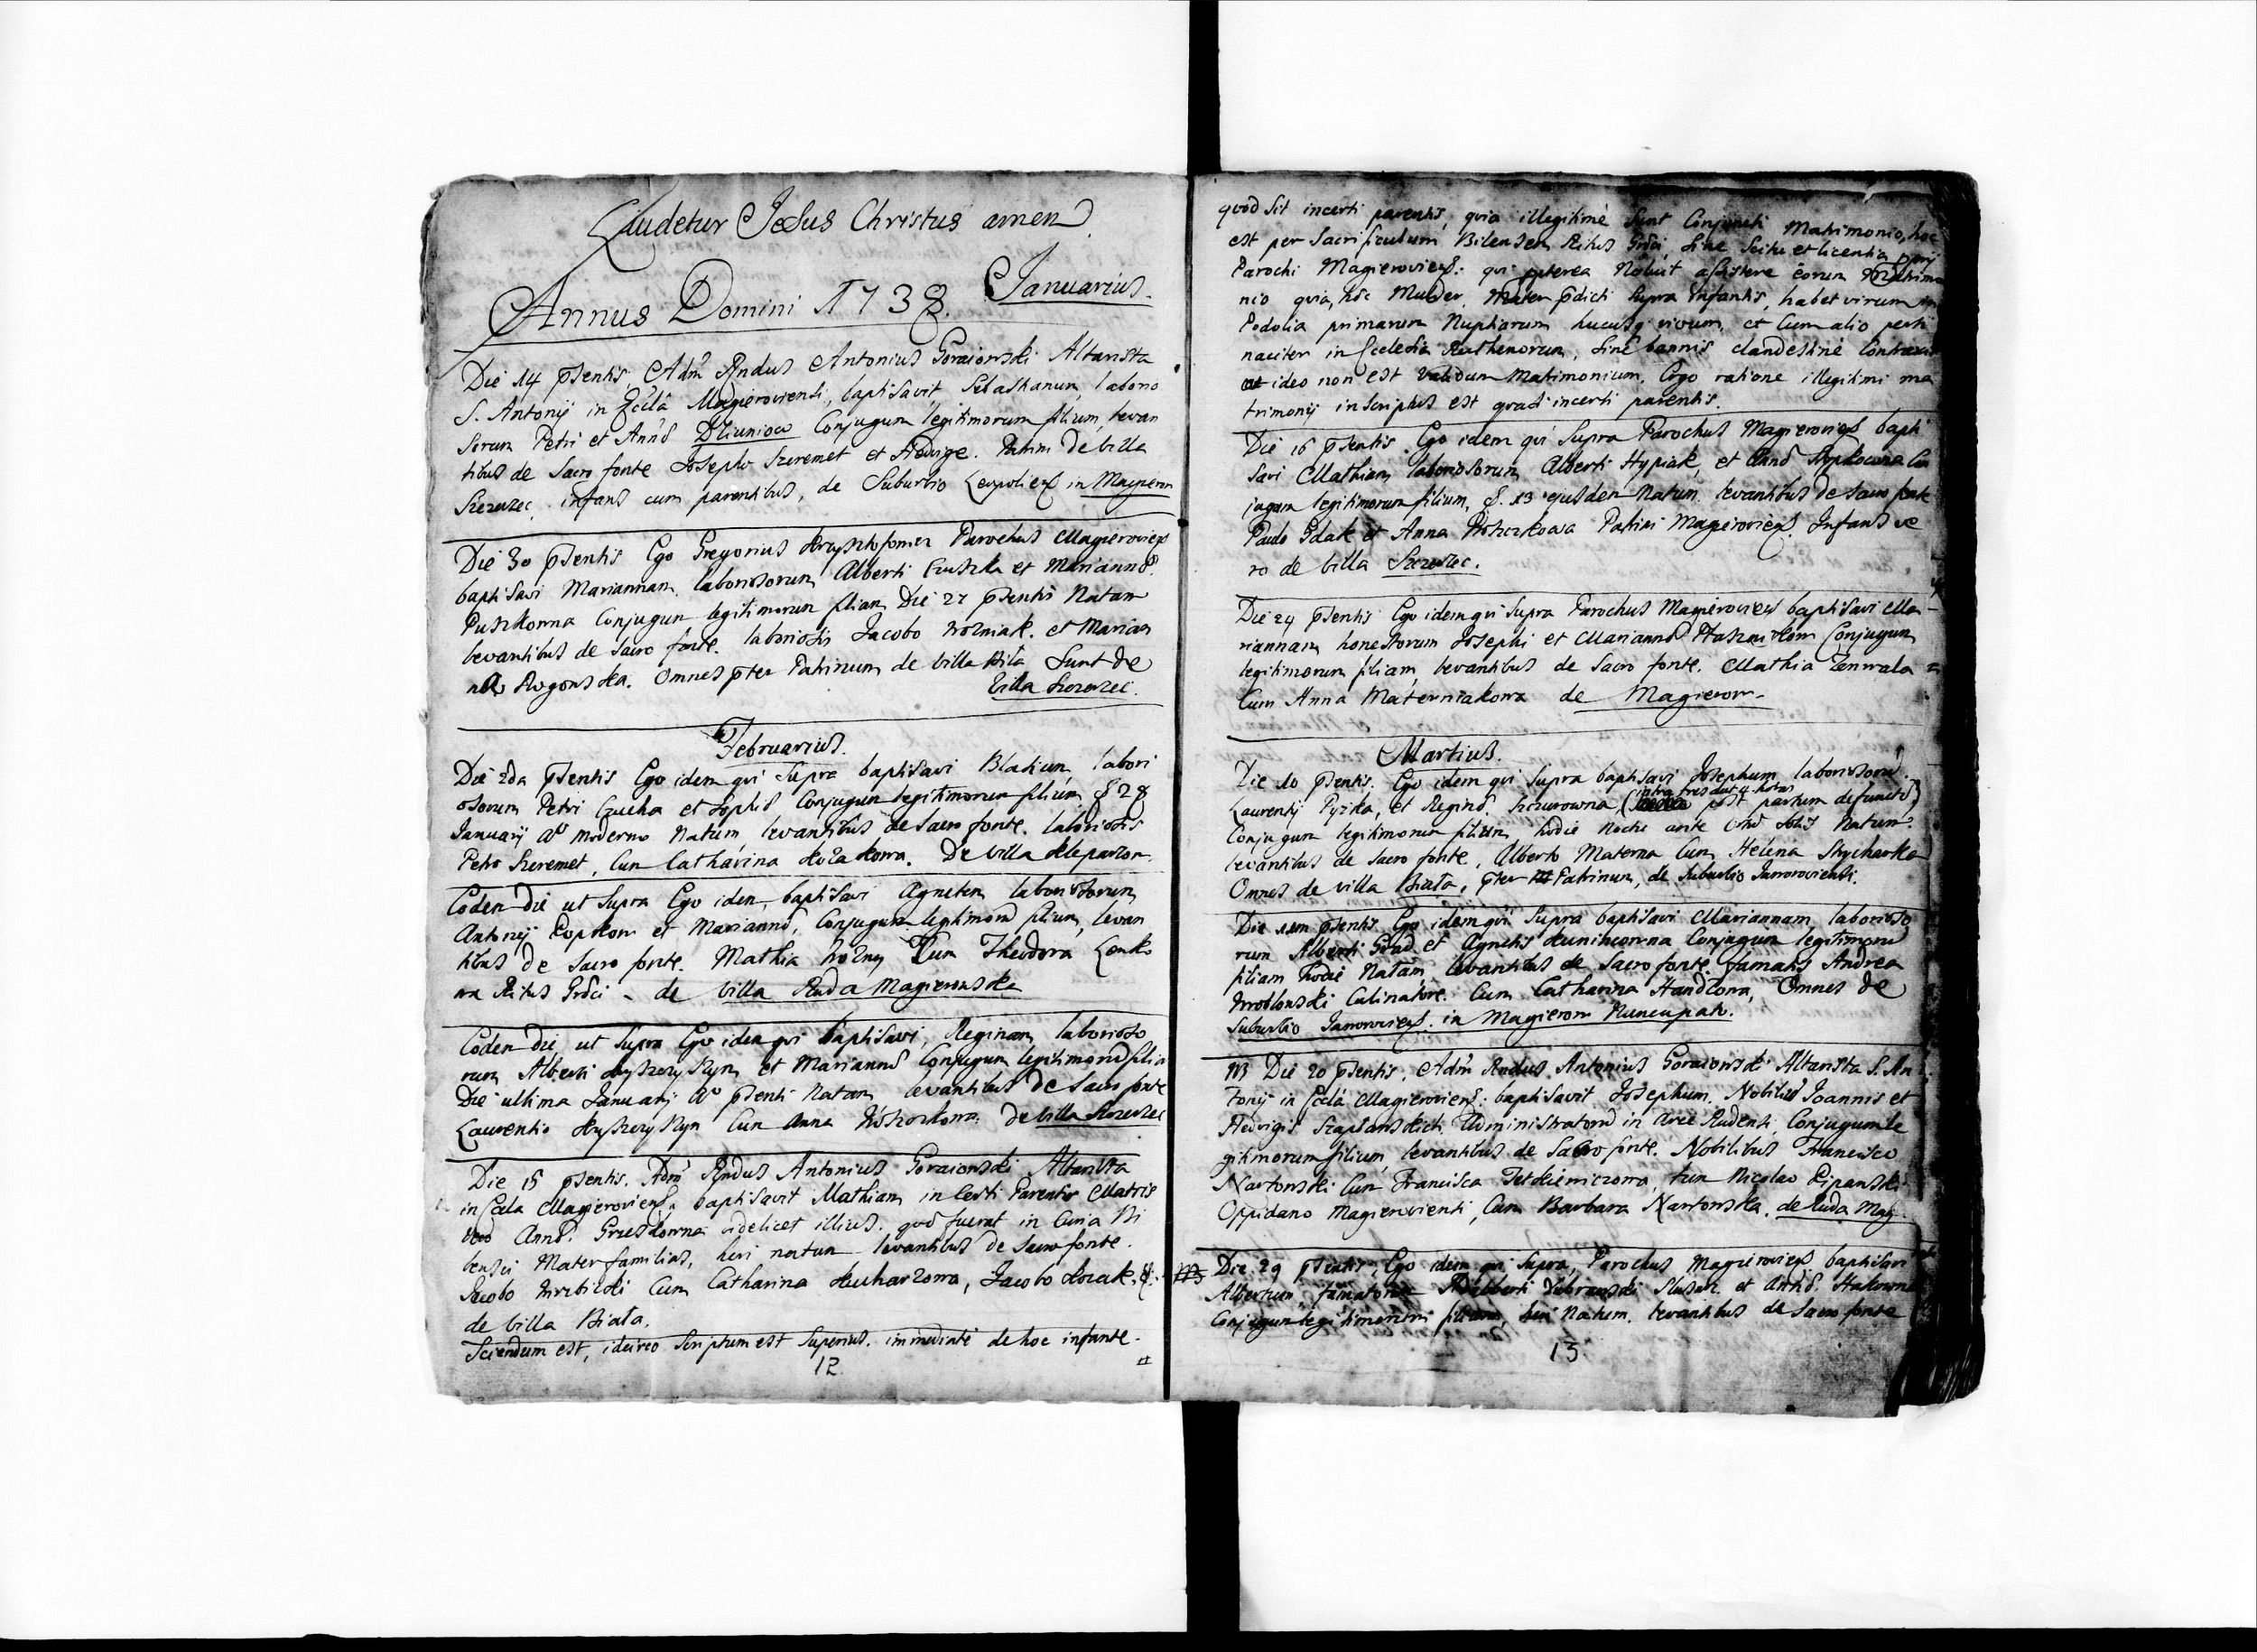 Laudetur Jesus Christus amen.
Annus Domini 1738. Januarius.
Die 14 psentis, Adm Rndus Antonius Goraionski Altarista
S. Antonij in Ecclâ Magieroviensi, baptisavit Sebastianum, laborio
sorum Petri et Annæ Dziuniow Conjugum legitimorum filium, levan
tibus de sacro fonte Josepho Szeremet et Hedvige. Patrini de villa
Szczerzec, infans cum parentibus, de Suburbio Leopolien in Magierow
Die 30 psentis Ego Gregorius Parochus Magierovien
baptisavi Mariannam laboriosorum Alberti Gruszka et Mariannæ
Puszkowna Conjugum legitimorum filiam Die 27 psentis Natam
levantibus de sacro fonte. laboriosis Jacobo Wozniak. et Marian
na Rogonska. Omnes pter Patrinum de villa Biła sunt de
villa Szczerzec.
Februarius.
Die 2da psentis Ego idem qui supra baptisavi Blasium labori
osorum Petri et Sophiæ Conjugum legitimorum filium d 28
Januarij Ao moderno Natum, levantibus de sacro fonte. laboriosis
Petro Szeremet, Cum Catharina Kozakowa. De villa
Eoden die ut supra Ego idem, baptisavi Agnetem laboriosorum
Antonij Popkow et Mariannæ, Conjugum legitimorû filium, levan
tibus de sacro fonte. Mathia Wozny Cum Theodora Lenko
wa Ritus Græci - de villa Ruda Magierowska
Eoden die ut supra Ego idem qui baptisavi, Reginam laborioso
rum Alberti et Mariannæ Conjugum legitimorû filia
Die ultima Januarij Ao psenti Natam levantibus de sacro fonte
Laurentio Cum Anna de villa Szczerzec
Die 15 psentis. Adm Rndus Antonius Goraionski Altarista
in Ecclâ Magierovien. baptisavit Mathiam incerti Parentis Matris
vero Annæ. videlicet illius. quæ fuerat in Curia Bi
lensci Mater familias, heri natum levantibus de sacro fonte.
Jacobo Cum Catharina Kucharzowa, Jacobo Kozak, &
de villa Biała.
Sciendum est, idcirco scriptum est superius. immediate de hoc infante.
12
quod sit incerti parentis, quia illegitimè sunt Conjuncti Matrimonio, hoc
est per Sacrificulum Bilensem Ritus Græci, sine scitu et licentia pprij
Parochi Magierovien: qui pterea Noluit assistere eorum Matrimo
nio quia, hæc Mulier, Mater pdicti supra infantis, habet virum in
Podolia primarum Nuptiarum hucusq vivum, et Cum alio perti
naciter in Ecclesia Ruthenorum, sine bannis clandestinè Contraxit
et ideo non est validum Matrimonium. Ergo ratione illegitimi ma
trimonij inscriptus est quasi incerti parentis.
Die 16 psentis Ego idem qui supra Parochus Magierovien bapti
savi Mathiam laboriosorum Alberti Hypiak, et Annæ Con
jugum legitimorum filium, d. 13 ejusdem Natum. levantibus de sacro fonte
Paulo Gdak et Anna Patrini Magierovien. Infans ve
ro de villa Szczerzec.
Die 24 psentis Ego idem qui supra Parochus Magierovien baptisavi Ma
riannam honestorum Josephi et Mariannæ Conjugum
legitimorum filiam, levantibus de sacro fonte. Mathia
Cum Anna Materniakowa de Magierow.
Martius.
Die 10 psentis. Ego idem qui supra baptisavi Josephum laboriosorû.
Laurentij Pyzika, et Reginæ Szczurowna (intra tres aut 4 horas post partum defunctæ)
Conjugum legitimorum filium, hodie Nocte ante Natum.
levantibus de sacro fonte, Alberto Materna Cum Helena
Omnes de villa Biała, pter Patrinum, de Suburbio Janoroviensi.
Die 11m psentis Ego idem qui supra baptisavi Mariannam laborioso
rum Alberti Grad et Agnetis Conjugum legitimorû
filiam hodie Natam levantibus de sacro fonte famatis Andrea
Wroblonski Culinatore. Cum Catharina Handlowa, Omnes de
Suburbio Janorovien. in Magierow Nuncupato.
NB Die 20 psentis. Adm Rndus Antonius Goraionski Altarista S. An
tonij in Ecclâ Magierovien: baptisavit Josephum. Nobiliû Joannis et
Hedvigis Administratorû in Arce Rudensi, Conjugum le
gitimorum filium, levantibus de sacro fonte. Nobilibus Francisco
Nartowski Cum Francisca tum Nicolao Lipanski
Oppidano Magieroviensi, Cum Barbara Nartowska. de Ruda Mag.
NB Die 29 psentis, Ego idem qui supra, Parochus Magierovien baptisavi
Albertum, famatorum Adalberti et Annæ
Conjugum legitimorum filium, heri Natum. levantibus de sacro fonte
13.